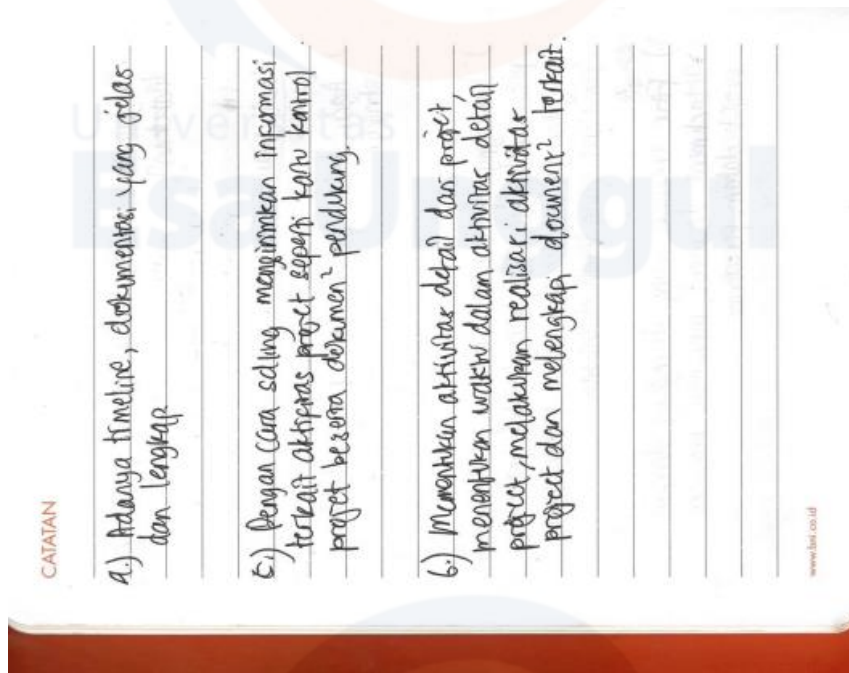 CATATAN
4.) Adanya timeline, dokumentasi yang jelas
dan lengkap
5.) Dengan cara saling mengirimkan informasi
terkait aktifitas project seperti kartu kontrol
project beserta dokumen² pendukung.
6.) Menentukan aktivitas detail dari project,
menentukan waktu dalam aktivitas detail
project, melakukan realisasi aktivitas
project dan melengkapi document² terkait.
www.bni.co.id
Universitas
Esa Unggul